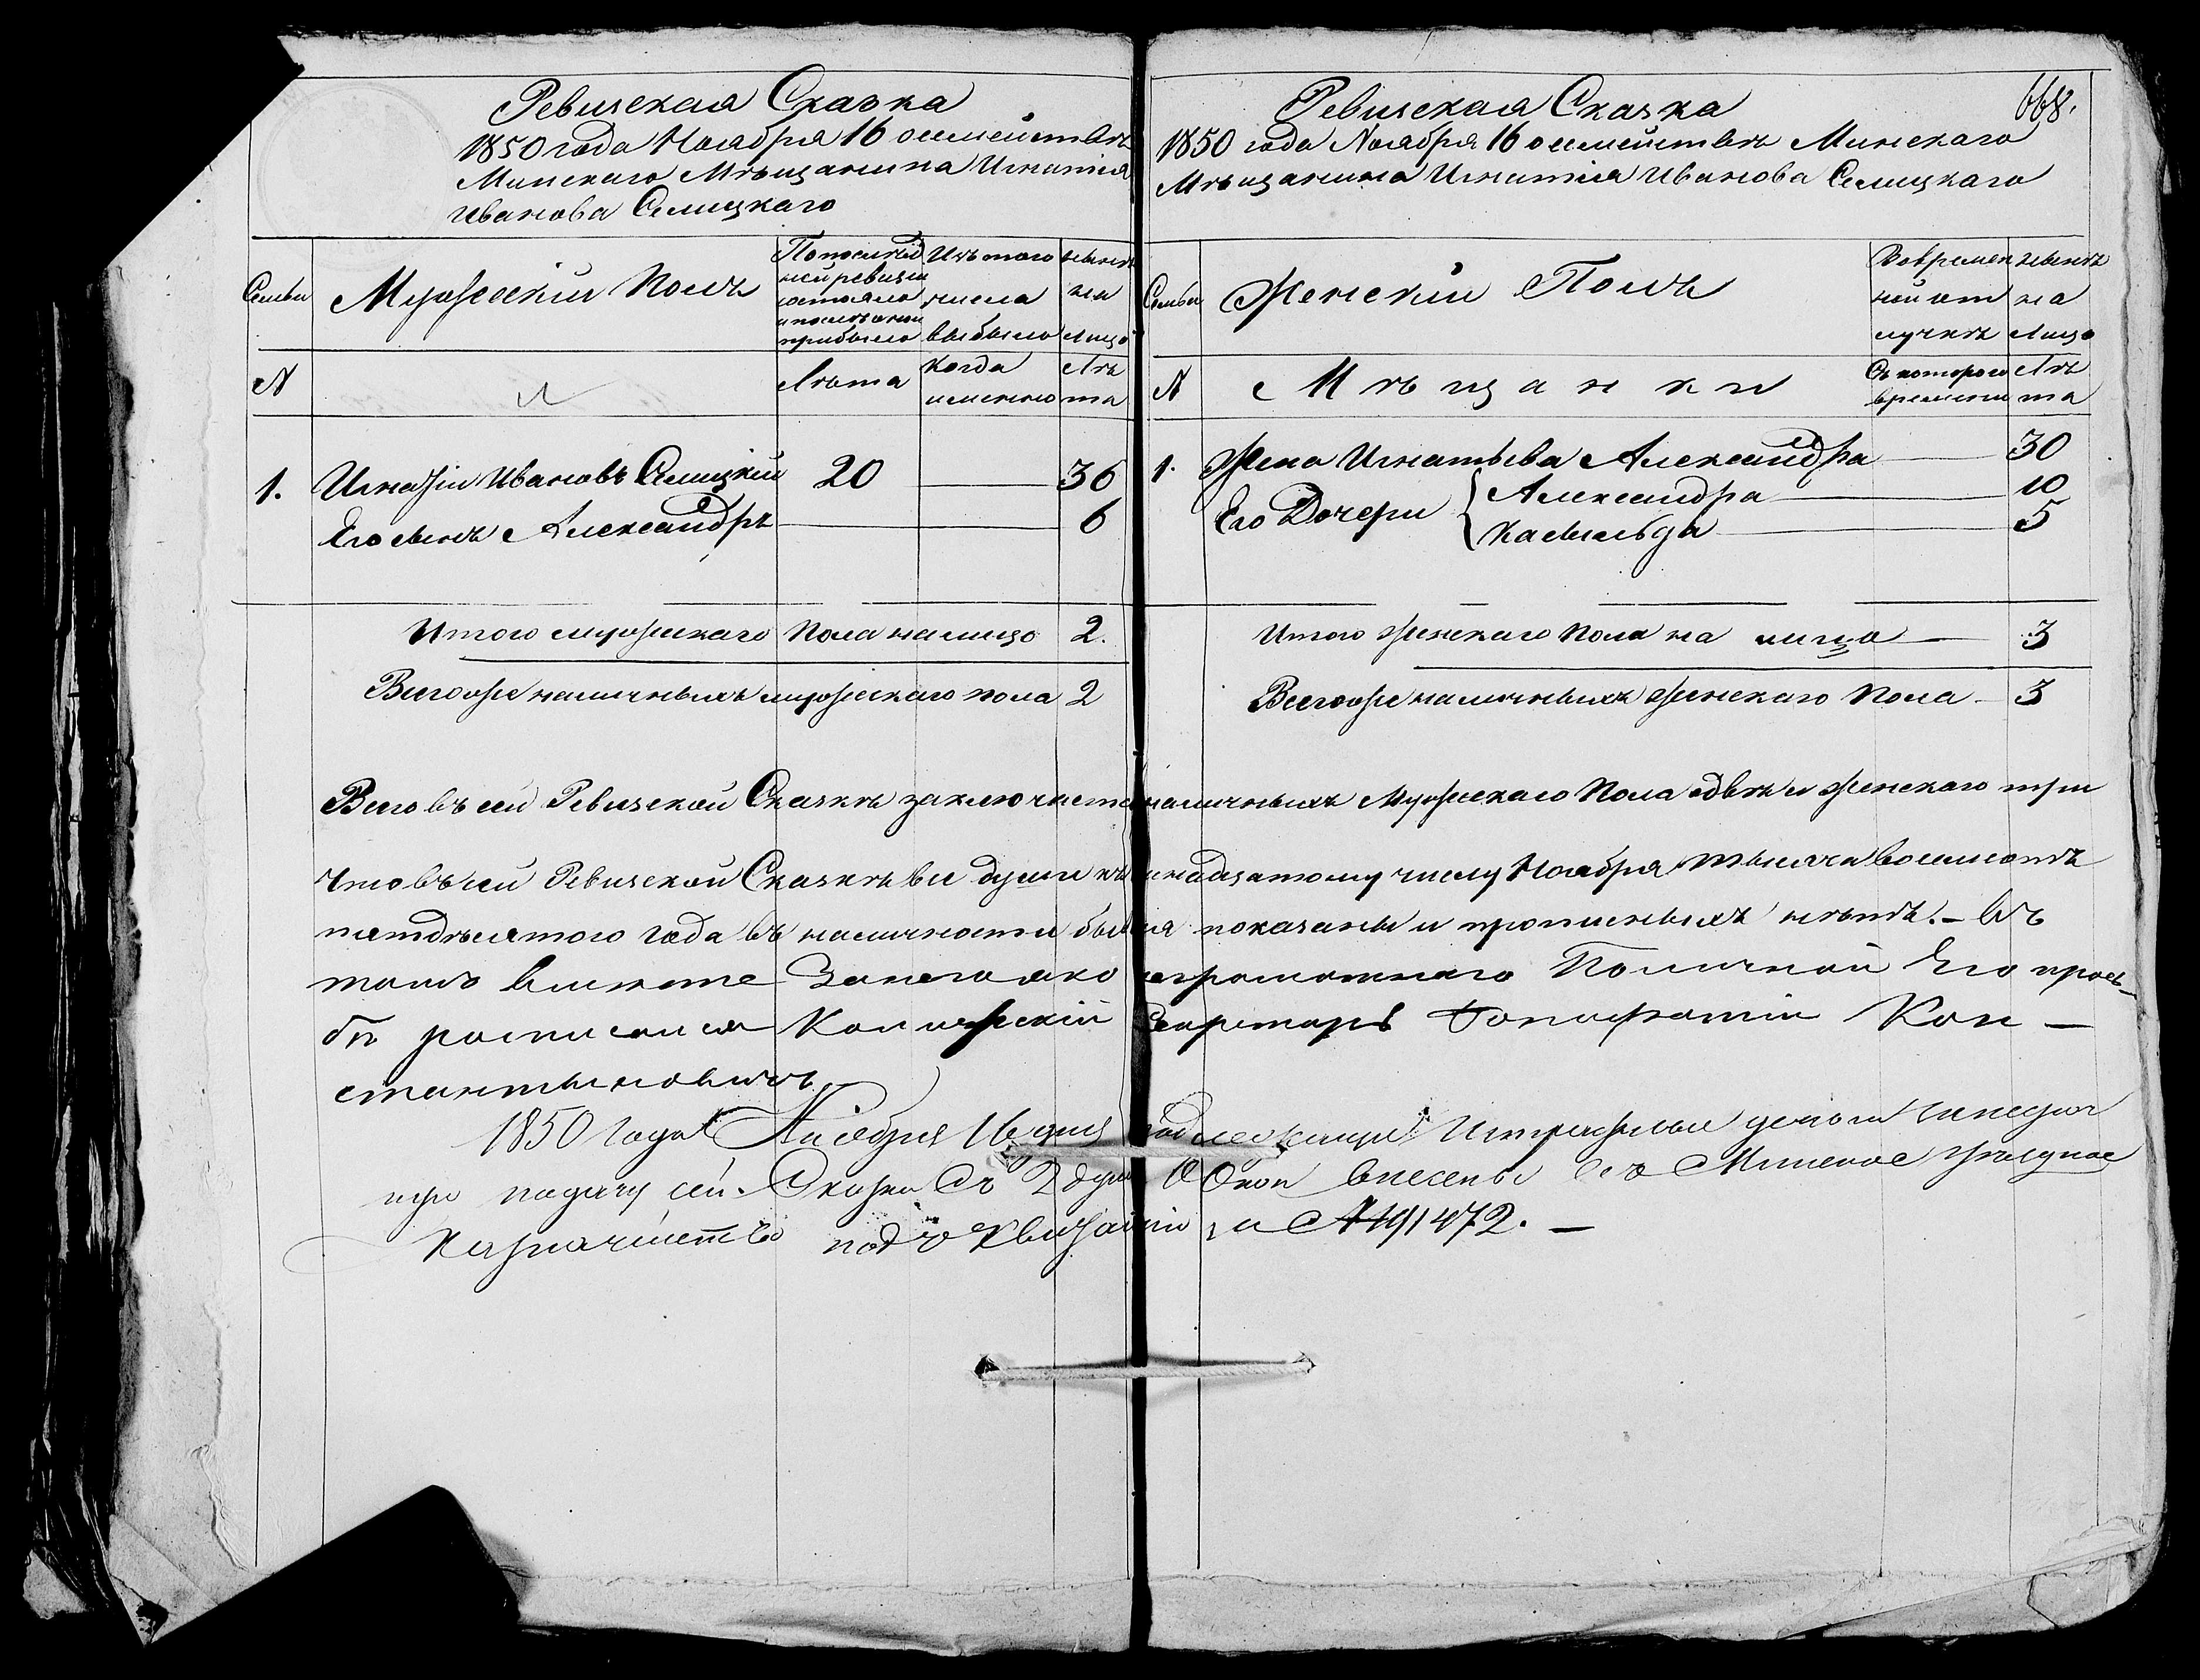 Ревизская Сказка
1850 года Ноября 16 о семействѣ
Минскаго Мѣщанина Игнатія
Иванова Селицкаго
Семьи
Мужескій Полъ
По последней ревизіи состояло и послѣ оной прибыло
Изъ того числа выбыло
нынѣ на лицо
№
Лѣта
когда именно
Лѣта
1. Игнатій Ивановъ Селицкій 20 36
Его сынъ Александръ 6
Итого мужескаго Пола на лицо 2.
Всего же наличныхъ мужескаго пола 2
668.
Ревизская Сказка
1850 года Ноября 16 о семействѣ Минскаго
Мѣщанина Игнатія Иванова Селицкаго
Семьи
Женскій Полъ
Во временной отлучкѣ
нынѣ на лицо
№
Мѣщанки
Съ котораго времени
Лѣта
1. Жена Игнатьева Александра 30
Его Дочери Александра 10
Касыльда 5
Итого женскаго Пола на лицо 3
Всего же наличныхъ женскаго Пола 3
Всего въ сей Ревизской Сказкѣ заключается наличныхъ Мужескаго Пола двѣ и женскаго три
Что въ сей Ревизской Сказкѣ все души къ надцатому числу Ноября тысяча восемсотъ
пятдѣсятого года въ наличности бывшія показаны и прописныхъ нѣтъ. – Въ
томъ вместе За него яко неграмотнаго По личной Его прозь-
бѣ росписался Коллежскій Секретарь Бонифатій Кон-
стантыновичъ
1850 года Ноября 16 дня Штрафные деньги
при подачу сей Сказки Съ 2 душ внесены въ Минское Уѣздное
Казначейство подъ Квитанціи за № 191472. –